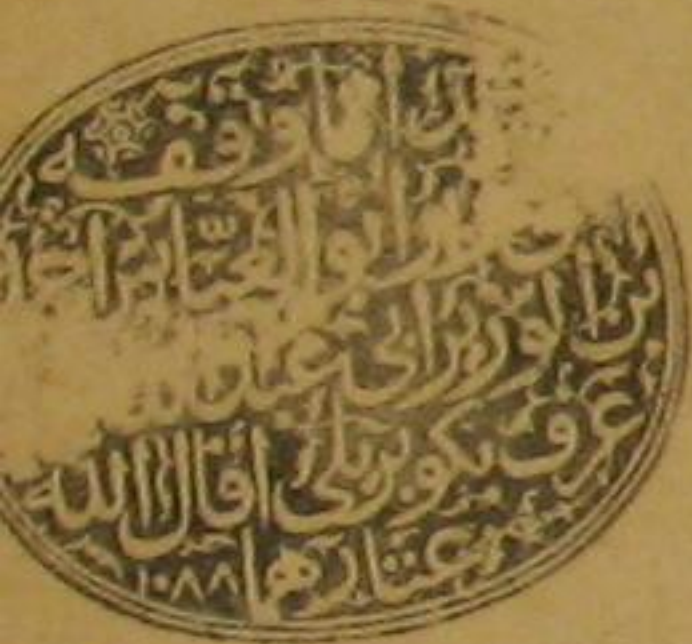 هذا ما وقفه
الوزير ابو العبّاس احمد
بن الوزير ابي عبد الله
عرف بكوبريلي اقال الله
عثارهما ١٠٨٨